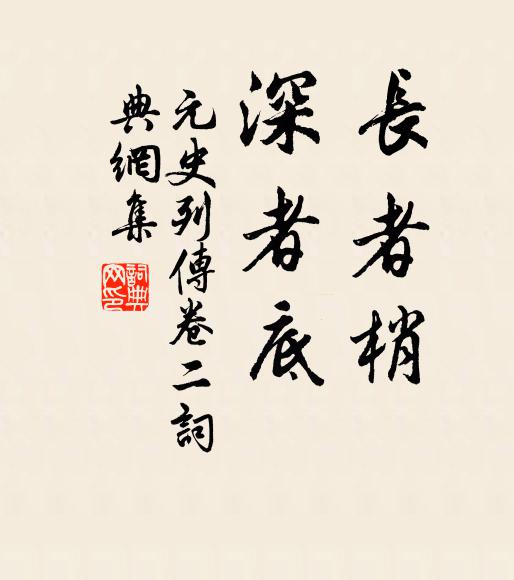 長者梢
深者底
元史列傳卷二詞
典網集
詞典网印